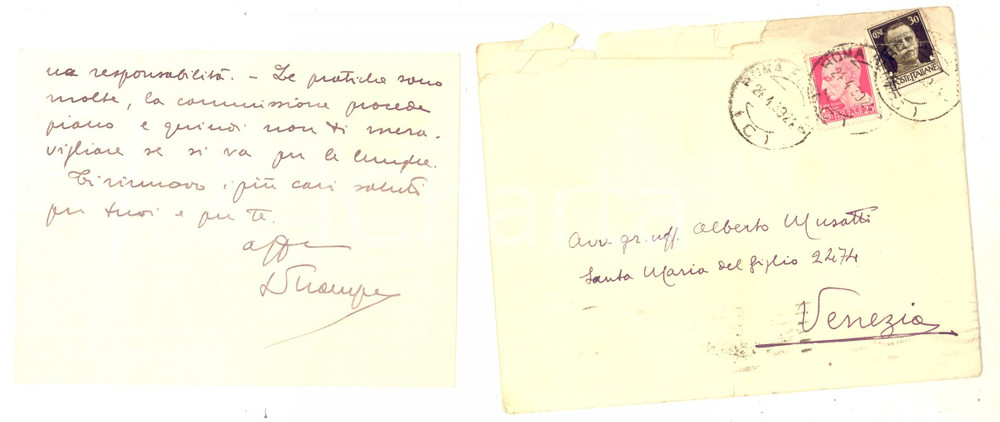 na responsabilità. – Le pratiche sono
molte, la commissione procede
piano e quindi non ti mera-
vigliare se si va per le lunghe.
Ti rinnovo i più cari saluti
per tuoi e per te.
affmo
ROMA
24.4.39
POSTE ITALIANE
30
Avv. gr. uff. Alberto Musatti
Santa Maria del Giglio 2274
Venezia